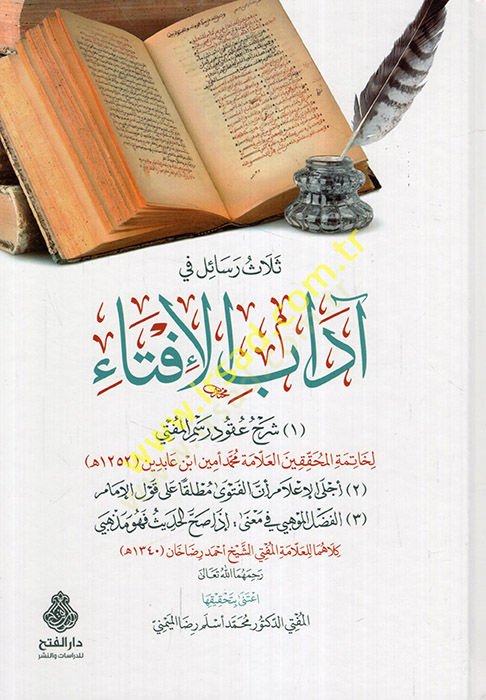 ثَلَاثُ رَسَائِل فِي
آدَابِ الإِفْتَاءِ
(١) شَرْحُ عُقُودِ رَسْمِ المُفْتِي
لِخَاتِمَةِ المُحَقِّقِينَ العَلَّامَة مُحَمَّد أَمِين ابن عَابِدِين (١٢٥٢هـ)
(٢) أَجْلَى الإِعْلَام أَنَّ الفَتْوَى مُطْلَقًا عَلَى قَوْلِ الإِمَام
(٣) الفَضْلُ المَوْهِبِي فِي مَعْنَى: إِذَا صَحَّ الحَدِيثُ فَهُوَ مَذْهَبِي
كِلَاهُمَا لِلعَلَّامَةِ المُفْتِي الشَّيْخ أَحْمَد رِضَا خَان (١٣٤٠هـ)
رَحِمَهُمَا اللهُ تَعَالَى
اعْتَنَى بِتَحْقِيقِهَا
المُفْتِي الدُّكْتُور مُحَمَّد أَسْلَم رِضَا المَيْمَنِيّ
دار الفتح
للدراسات والنشر